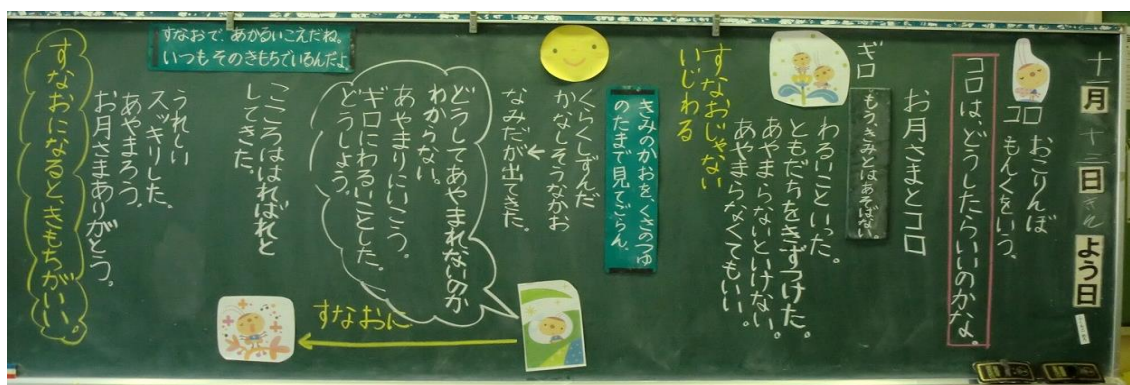 十二月十三日きんよう日
コロ
おこりんぼ
もんくをいう。
コロは、どうしたらいいのかな。
お月さまとコロ
ギロ
もう、きみとはあそばない
わるいこといった。
ともだちをきずつけた。
あやまらないといけない。
あやまらなくてもいい。
すなおじゃない
いじわる
きみのかおを、くさのつゆ
のたまで見てごらん。
くらくしずんだ
かなしそうなかお
なみだが出てきた。
どうしてあやまれないのか
わからない。
あやまりにいこう。
ギロにわるいことした。
どうしよう。
すなおに
すなおで、あかるいこえだね。
いつもそのきもちでいるんだよ
こころははればれと
してきた。
うれしい
スッキリした。
あやまろう。
お月さまありがとう。
すなおになると、きもちがいい。